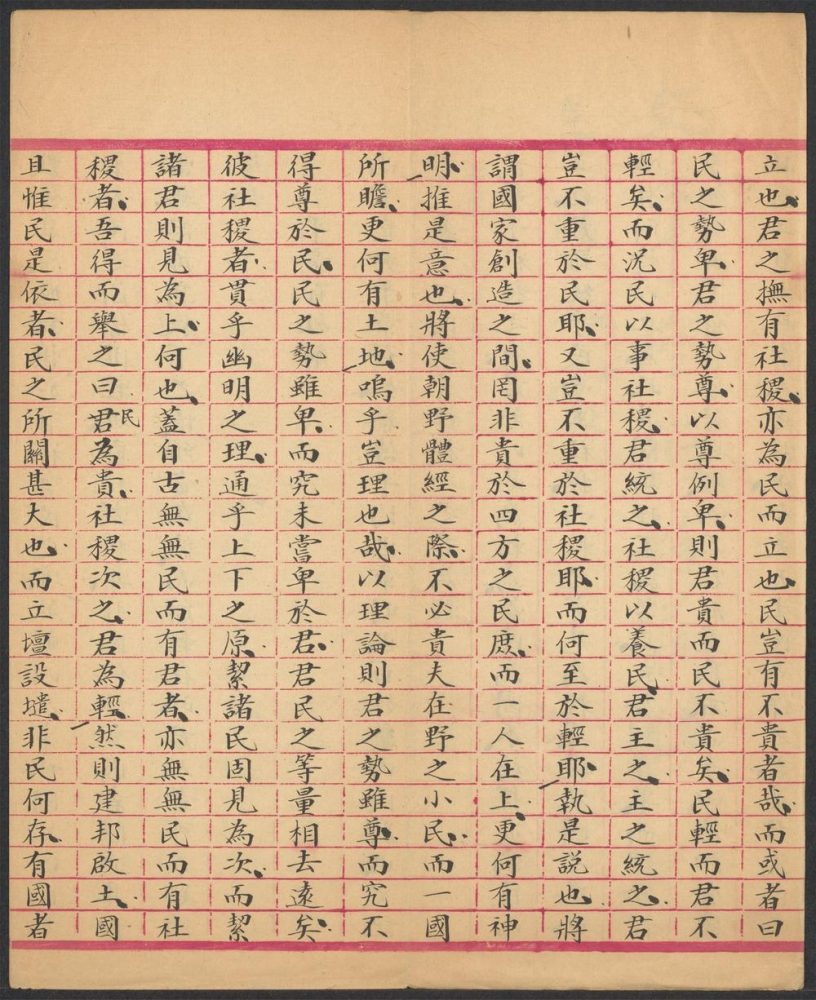 立也君之撫有社稷亦為民而立也民豈有不貴者哉而或者曰
民之勢卑君之勢尊以尊例卑則君貴而民不貴矣民輕而君不
輕矣而況民以事社稷君統之社稷以養民君主之主之統之君
豈不重於民耶又豈不重於社稷耶而何至於輕耶執是說也將
謂國家創造之間罔非貴於四方之民庶而一人在上更何有神
明推是意也將使朝野體經之際不必貴夫在野之小民而一國
所瞻更何有土地嗚乎豈理也哉以理論則君之勢雖尊而究不
得尊於民民之勢雖卑而究未嘗卑於君君民之等量相去遠矣
彼社稷者貫乎幽明之理通乎上下之原絜諸民固見為次而絜
諸君則見為上何也蓋自古無無民而有君者亦無無民而有社
稷者吾得而舉之曰君民為貴社稷次之君為輕然則建邦啟土國
且惟民是依者民之所關甚大也而立壇設壝非民何存有國者